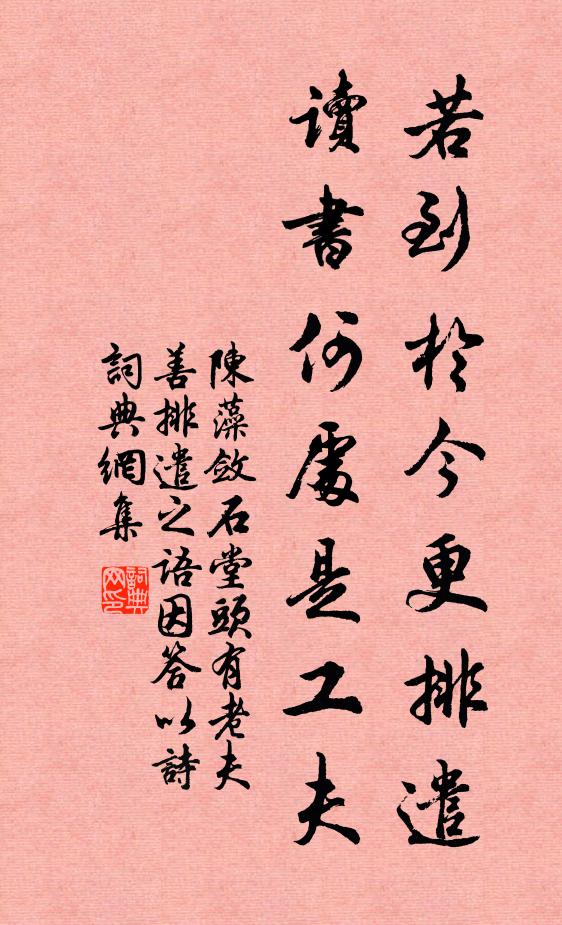 若到於今更排遣
讀書何處是工夫
陳藻敛石堂頭有老夫
善排遣之語因答以詩
詞典網集
詞典网印